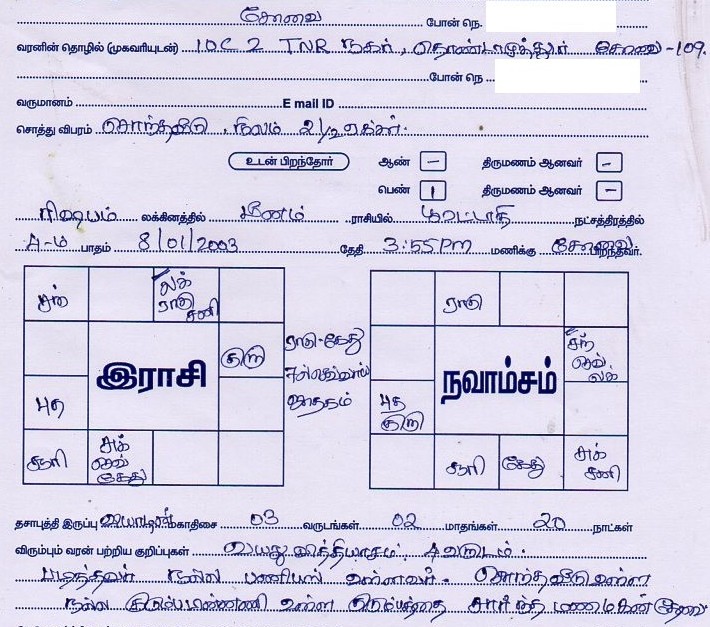 கோவை போன் நெ.
வரனின் தொழில் (முகவரியுடன்) 10C 2 TNR நகர், தொண்டாமுத்தூர் கோவை -109.
போன் நெ
வருமானம் E mail ID
சொத்து விபரம் சொந்தவீடு, நிலம் 2 1/2 ஏக்கர்.
உடன் பிறந்தோர் ஆண் - திருமணம் ஆனவர் -
பெண் 1 திருமணம் ஆனவர் -
ரிஷபம் லக்கினத்தில் மீனம் ராசியில் பூரட்டாதி நட்சத்திரத்தில்
4-ம் பாதம் 8/01/2003 தேதி 3:55PM மணிக்கு கோவை பிறந்தவர்.
சந் லக் ராகு சனி ராகு
குரு ராகு-கேது சந் செவ் லக்
இராசி ஜாதகம் நவாம்சம்
புத புத குரு
சுரி சுக் செவ் கேது சுரி கேது சுக் சனி
தசாபுத்தி இருப்பு வியாழன் மகாதிசை 03 வருடங்கள் 02 மாதங்கள் 20 நாட்கள்
விரும்பும் வரன் பற்றிய குறிப்புகள் வயது வித்தியாசம் 4 வருடம்.
படித்தவர் நல்ல பணியில் உள்ளவர். சொந்தவீடு உள்ள
நல்ல குடும்ப பின்னணி உள்ள குடும்பத்தை சார்ந்த மணமகன் தேவை